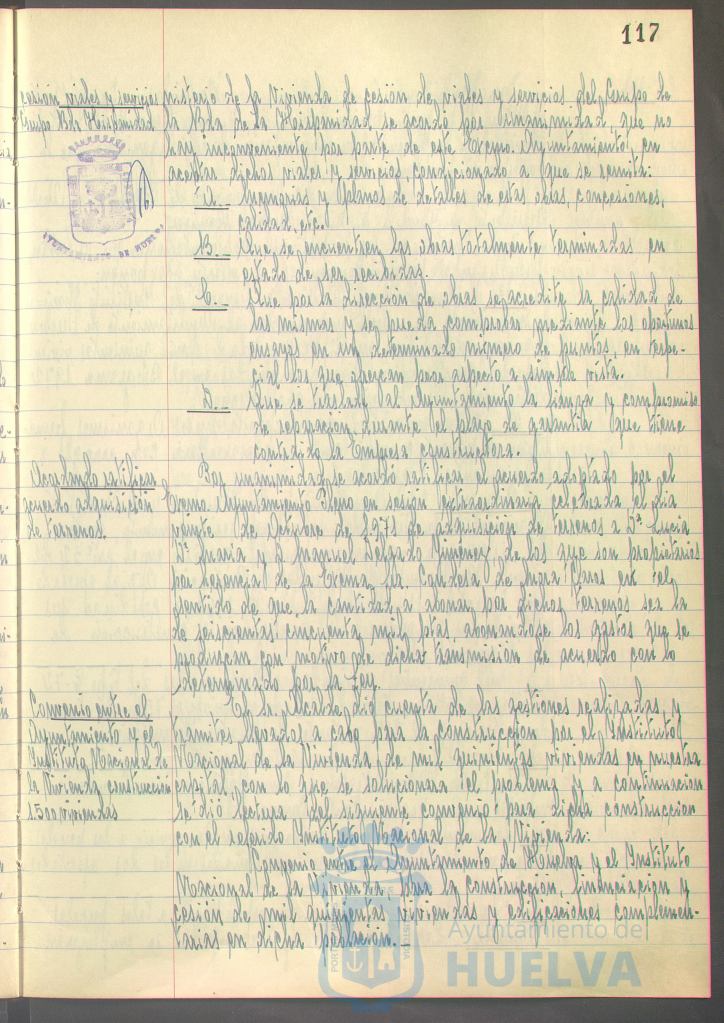 117
cesión viales y servicios
Grupo Bda Hispanidad
nisterio de la Vivienda de cesión de viales y servicios del Grupo de
la Bda de la Hispanidad, se acordó por unanimidad, que no
hay inconveniente por parte de este Excmo. Ayuntamiento, en
aceptar dichos viales y servicios, condicionado a que se remita:
A.- Memorias y planos de detalles de estas obras, concesiones,
calidad, etc.
B.- Que se encuentren las obras totalmente terminadas en
estado de ser recibidas.
C.- Que por la dirección de obras se acredite la calidad de
las mismas y se pueda comprobar mediante los oportunos
ensayos en un determinado número de puntos, en espe-
cial los que ofrezcan peor aspecto a simple vista.
D.- Que se traslade al Ayuntamiento la fianza y compromiso
de reparación durante el plazo de garantía que tiene
contraido la Empresa constructora.
AYUNTAMIENTO DE HUELVA
Acordando ratificar
acuerdo adquisición
de terrenos.
Por unanimidad se acordó ratificar el acuerdo adoptado por el
Excmo. Ayuntamiento Pleno en sesión extraordinaria celebrada el dia
veinte de Octubre de 1.973 de adquisición de terrenos a Dª Lucia
Dª Maria y D. Manuel Delgado Jiménez, de los que son propietarios
por herencia de la Excma. Sra. Condesa de Mora Claros en el
sentido de que la cantidad a abonar por dichos terrenos sea la
de seiscientas cincuenta mil ptas, abonandose los gastos que se
produzcan con motivo de dicha transmisión de acuerdo con lo
determinado por la Ley.
Convenio entre el
Ayuntamiento y el
Instituto Nacional de
la Vivienda construcción
1.500 viviendas
El Sr. Alcalde dió cuenta de las gestiones realizadas, y
tramites llevados a cabo para la construccion por el Instituto
Nacional de la Vivienda de mil quinientas viviendas en nuestra
capital, con lo que se solucionara el problema y a continuacion
se dió lectura del siguiente convenio para dicha construccion
con el referido Instituto Nacional de la Vivienda:
Convenio entre el Ayuntamiento de Huelva y el Instituto
Nacional de la Vivienda para la construccion, financiacion y
cesión de mil quinientas viviendas y edificaciones complemen-
tarias en dicha poblacion.
Ayuntamiento de
HUELVA